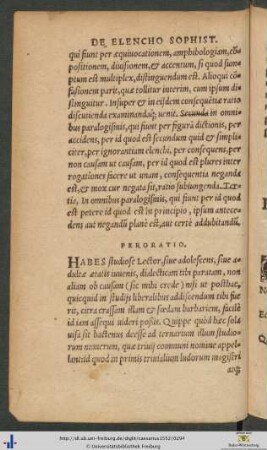 DE ELENCHO SOPHIST.
qui fiunt per æquiuocationem, amphibologiam, cõ-
positionem, diuisionem, & accentum, si quod sum-
ptum est multiplex, distinguendum est. Alioqui cõ-
fusionem parit, quæ tollitur interim, cum ipsum di-
stinguitur. Insuper & in eisdem consequẽtiæ ratio
discutienda examinandaq́; uenit. Secunda in omni-
bus paralogismis, qui fiunt per figurã dictionis, per
accidens, per id quod est secundum quid & simpli-
citer, per ignorantiam elenchi, per consequens, per
non causam ut causam, per id quod est plures inter
rogationes facere ut unam, consequentia neganda
est, & mox cur negata sit, ratio subiungenda. Ter-
tia, In omnibus paralogismis, qui fiunt per id quod
est petere id quod est in principio, ipsum antece-
dens aut negandũ planè est, aut certè addubitandũ.
PERORATIO.
HABES studiose Lector, siue adolescens, siue a-
dultæ ætatis iuuenis, dialecticam tibi paratam, non
aliam ob causam (sic mihi crede) nisi ut posthac,
quicquid in studijs liberalibus addiscendum tibi fue
rit, citra crassam illam & fœdam barbariem, facilè
id ien assequi uideri possis. Quippe quòd hæc sol
uisa sit hactenus deesse ad ternarium illum studio-
rum numerum, quæ triuij communi nomine appel-
lantcñ quod in primis triuialium ludorum magistri
http://dl.ub.uni-freiburg.de/diglit/caesarius1552/0294
© Universitätsbibliothek Freiburg